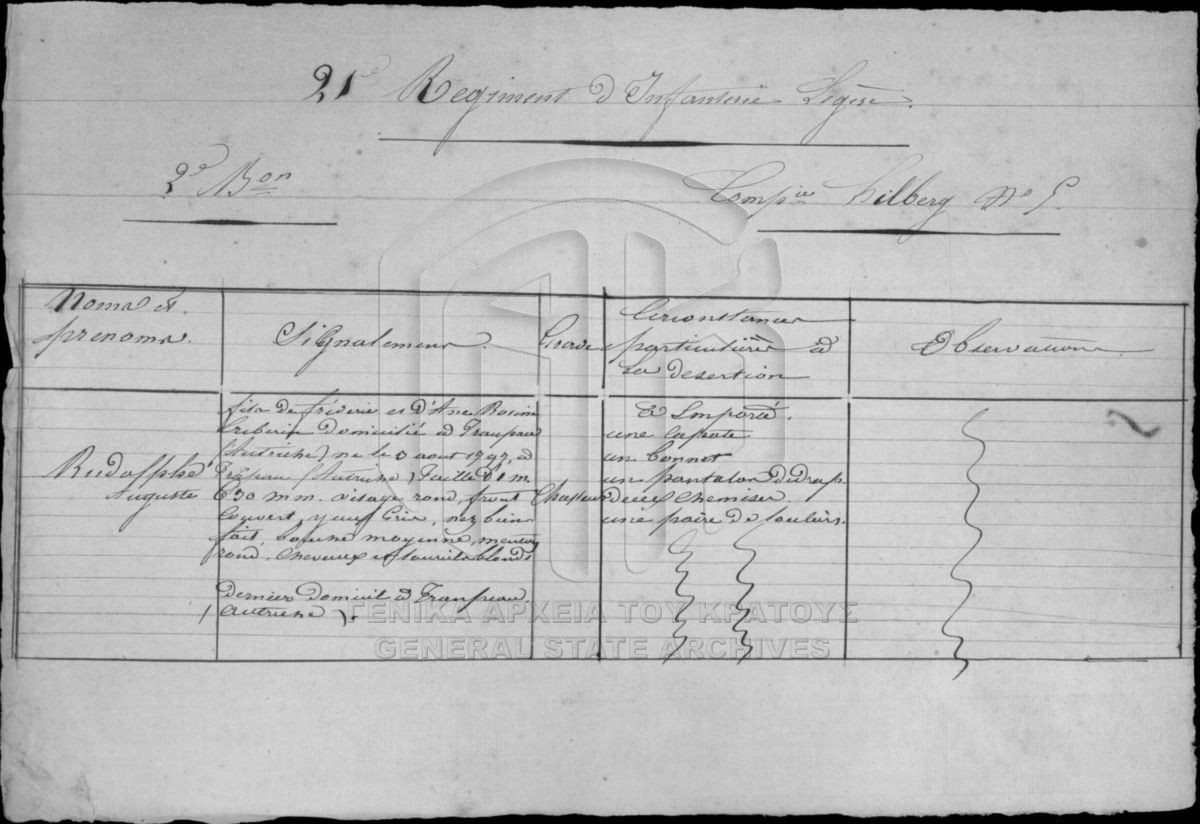 21e Regiment d'Infanterie Legère.
2e Bon
Compie Hilberg No 5.
Noms et
prenoms.
Signalement.
Grade
Circonstances
particulières à
la desertion
Observations.
Rudolphé
Auguste
fils de fréderic et d'Ane Rosine
domicilié à Traupau
(Autriche) né le 3 aout 1797, à
Trapau (Autriche) Taille d'1 m.
630 m m. visage rond, front
Couvert, yeux Gris, nez bien
fait, bouche moyenne, menton
rond. Cheveux et sourcils blonds
dernier domicil à Traupeau
(Autriche).
Chasseur
A Emporté.
une Capote
un bonnet
un pantalon de drap.
deux Chemises.
une paire de souliers.
ΓΕΝΙΚΑ ΑΡΧΕΙΑ ΤΟΥ ΚΡΑΤΟΥΣ
GENERAL STATE ARCHIVES